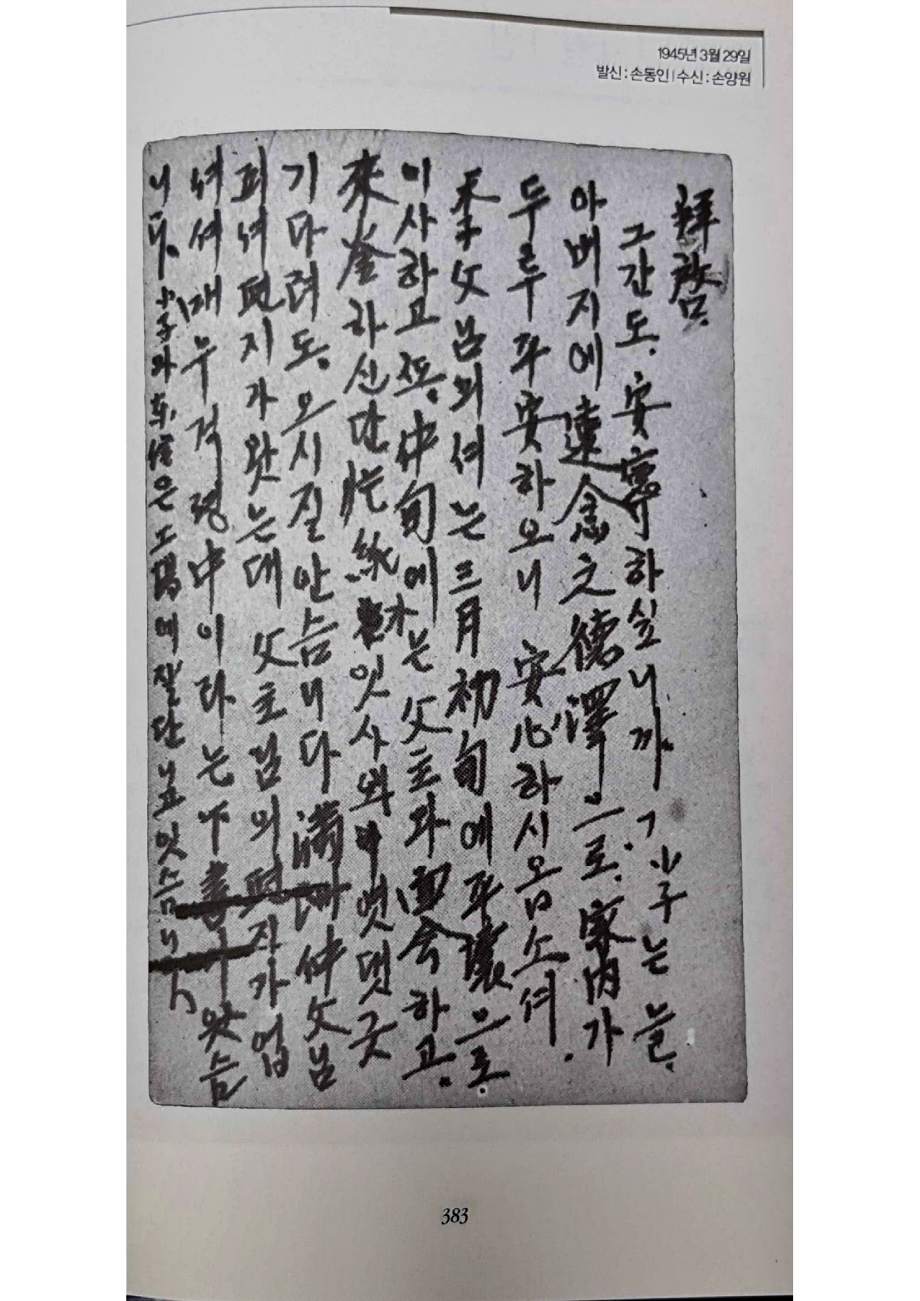 1945년 3월 29일
발신 : 손동인 | 수신 : 손양원
拜啓.
그간도. 安寧하심니까. 小子는 늘.
아버지에 遠念之德澤으로. 家内가
두루두 平安하오니 安心하시옵소셔.
季父님의셔는 三月初旬에 平壤으로.
이사하고 仝 中旬에는 父主와 面会하고.
來釜하신단 잇사와 엿댓굿
기다려도. 오시질 안슴니다 仲父님
피셔 편지가 왓는대 父主님의 편지가 업
셔셔 매우 걱정中이라는 下書 왓슴
니다. 小子와 東信은 工場에 잘 단니고 잇슴니
다
383